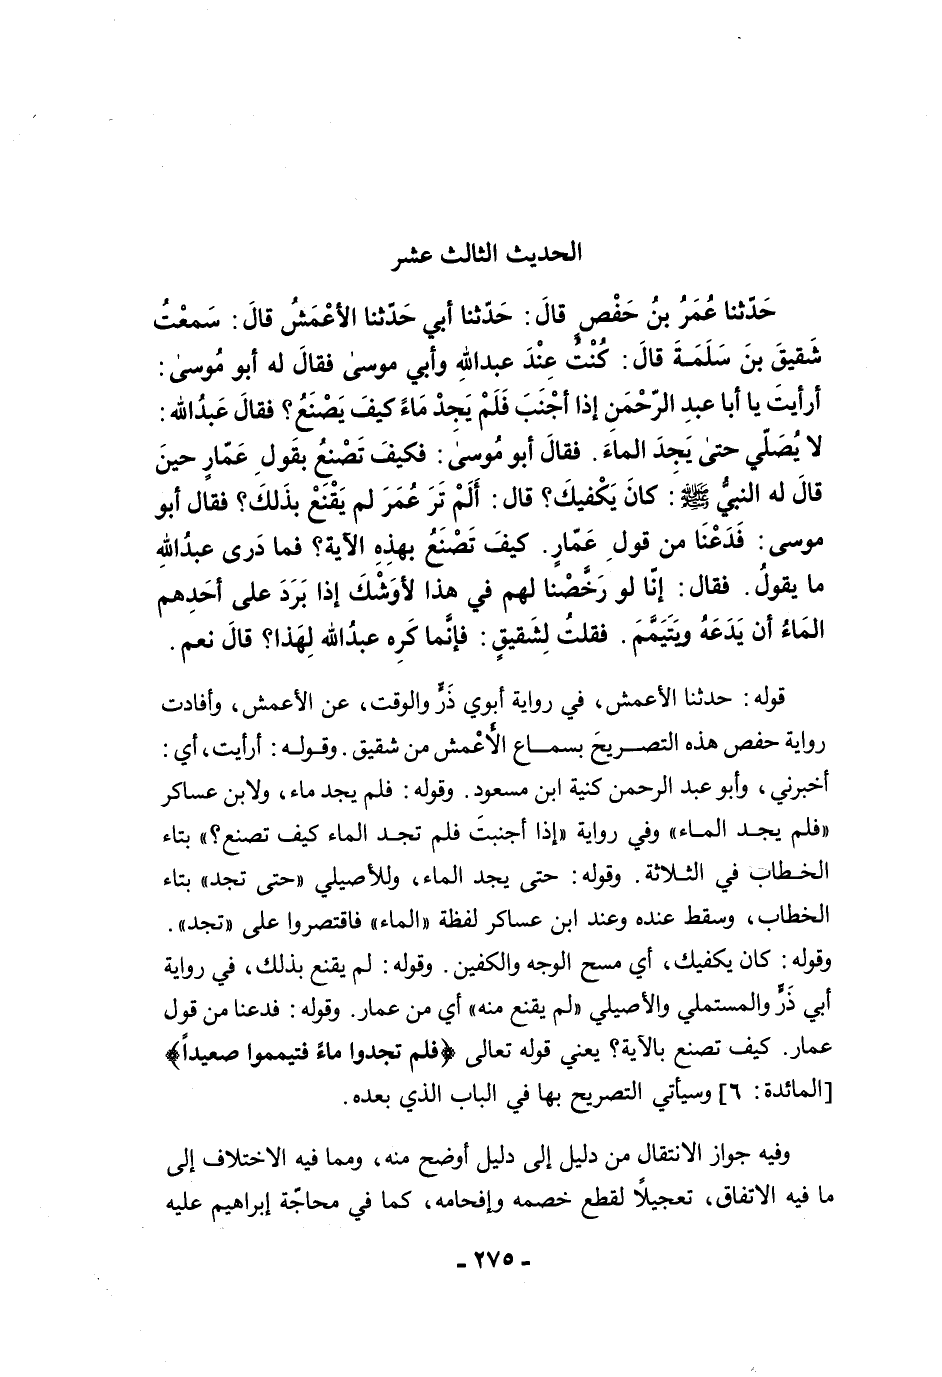 الحديث الثالث عشر
حَدّثنا عُمَرُ بنُ حَفْصٍ قالَ: حَدّثنا أبي حَدّثنا الأعْمَشُ قالَ: سَمعْتُ
شَقيقَ بنَ سَلَمَةَ قالَ: كُنْتُ عِنْدَ عبداللهِ وأبي موسىٰ فقالَ له أبو مُوسىٰ:
أرأيتَ يا أبا عبدِ الرّحْمَنِ إذا أجْنَبَ فَلَمْ يَجِدْ مَاءً كيفَ يَصْنَعُ؟ فقالَ عَبدُالله:
لا يُصَلّي حتىٰ يَجِدَ الماءَ. فقالَ أبو مُوسىٰ: فكيفَ تَصْنعُ بقَولِ عَمّارٍ حينَ
قالَ له النبيُّ ﷺ: كانَ يَكْفيكَ؟ قال: أَلَمْ تَرَ عُمَرَ لم يَقْنَعْ بذَلكَ؟ فقال أبو
موسى: فَدَعْنَا من قولِ عَمّارٍ. كيفَ تَصْنَعُ بهذِهِ الآية؟ فما دَرى عبدُاللهِ
ما يقولُ. فقال: إنّا لو رَخَّصْنا لهم في هذا لأوَشْكَ إذا بَرَدَ على أحَدِهم
المَاءُ أن يَدَعَهُ ويَتَيَمَّمَ. فقلتُ لِشَقيقٍ: فإنَّما كَرِه عبدُالله لِهَذا؟ قالَ نعم.
قوله: حدثنا الأعمش، في رواية أبوي ذَرٍّ والوقت، عن الأعمش، وأفادت
رواية حفص هذه التصريحَ بسماع الأَعْمش من شقيق. وقوله: أرأيت، أي:
أخبرني، وأبو عبد الرحمن كنية ابن مسعود. وقوله: فلم يجد ماء، ولابن عساكر
«فلم يجد الماء» وفي رواية «إذا أجنبتَ فلم تجد الماء كيف تصنع؟» بتاء
الخطاب في الثلاثة. وقوله: حتى يجد الماء، وللأصيلي «حتى تجد» بتاء
الخطاب، وسقط عنده وعند ابن عساكر لفظة «الماء» فاقتصروا على «تجد».
وقوله: كان يكفيك، أي مسح الوجه والكفين. وقوله: لم يقنع بذلك، في رواية
أبي ذَرٍّ والمستملي والأصيلي «لم يقنع منه» أي من عمار. وقوله: فدعنا من قول
عمار. كيف تصنع بالآية؟ يعني قوله تعالى ﴿فلم تجدوا ماءً فتيمموا صعيداً﴾
[المائدة: ٦] وسيأتي التصريح بها في الباب الذي بعده.
وفيه جواز الانتقال من دليل إلى دليل أوضح منه، ومما فيه الاختلاف إلى
ما فيه الاتفاق، تعجيلًا لقطع خصمه وإفحامه، كما في محاجّة إبراهيم عليه
- ٢٧٥ -